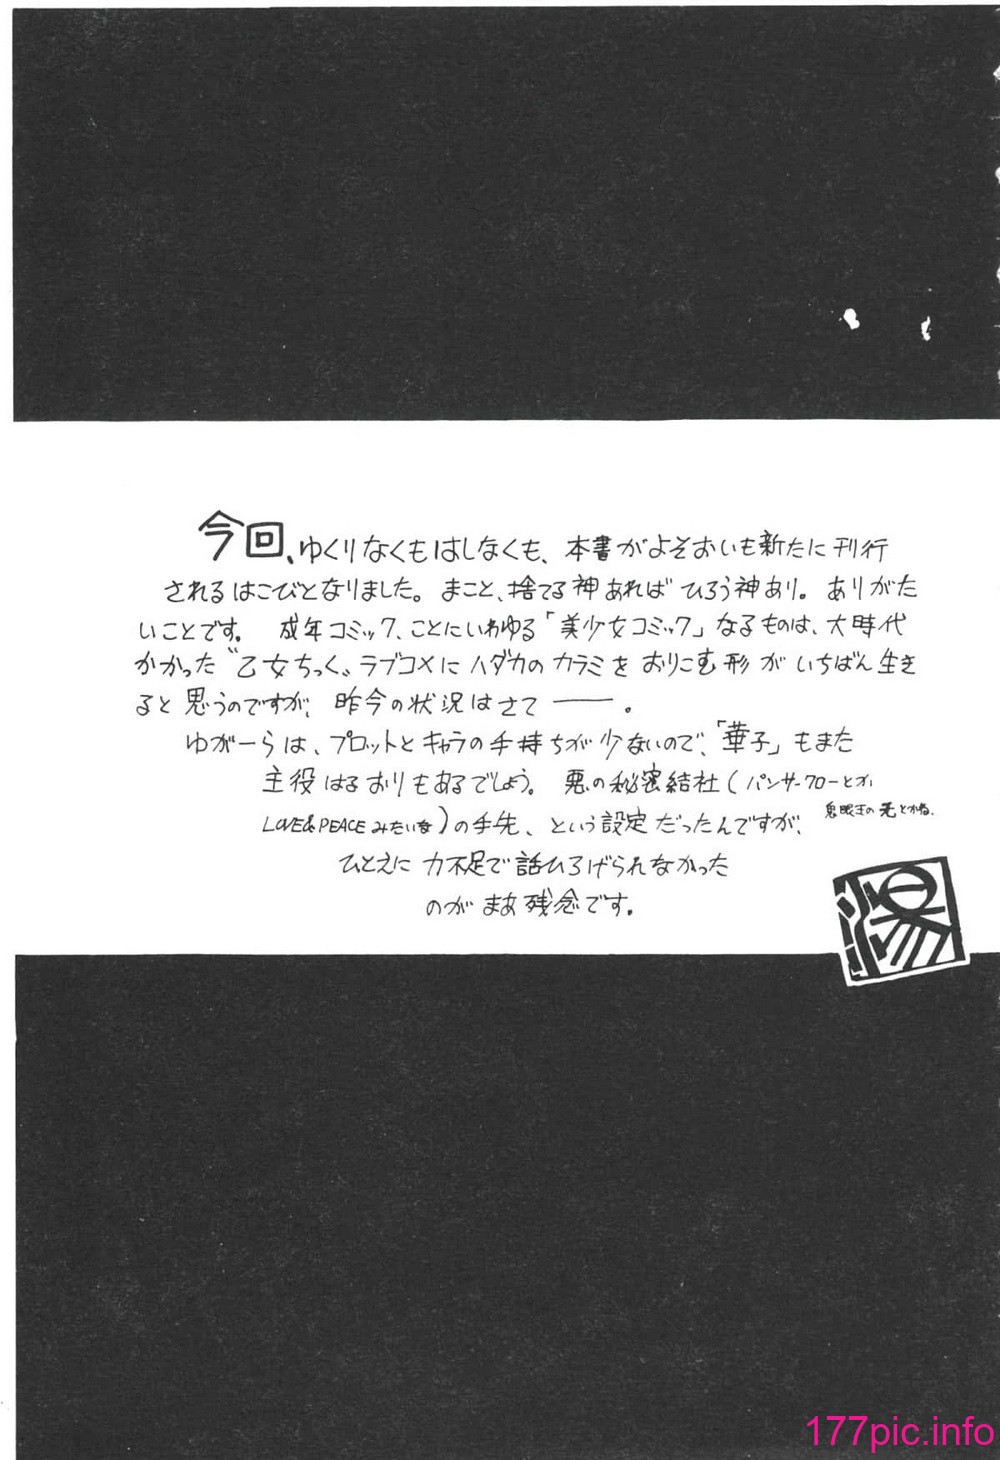 今回、ゆくりなくもはしなくも、本書がよそおいも新たに刊行
されるはこびとなりました。まこと、捨てる神あればひろう神あり。ありがた
いことです。 成年コミック、ことにいわゆる「美少女コミック」なるものは、大時代
がかった〝乙女ちっく〟ラブコメにハダカのカラミをおりこむ形がいちばん生き
ると思うのですが、昨今の状況はさて――。
ゆがーらは、プロットとキャラの手持ちが少ないので、「華子」もまた
主役はるおりもあるでしょう。悪の秘密結社(パンサークローとか
LOVE&PEACEみたいな)の手先、という設定だったんですが、
鬼眼王の 禿とかね.
ひとえに力不足で話ひろげられなかった
のがまあ残念です。
177pic.info